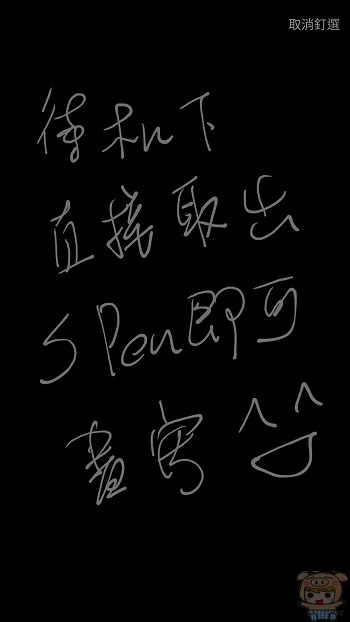 取消釘選
待机下
直接取出
S Pen即可
書寫 ^^